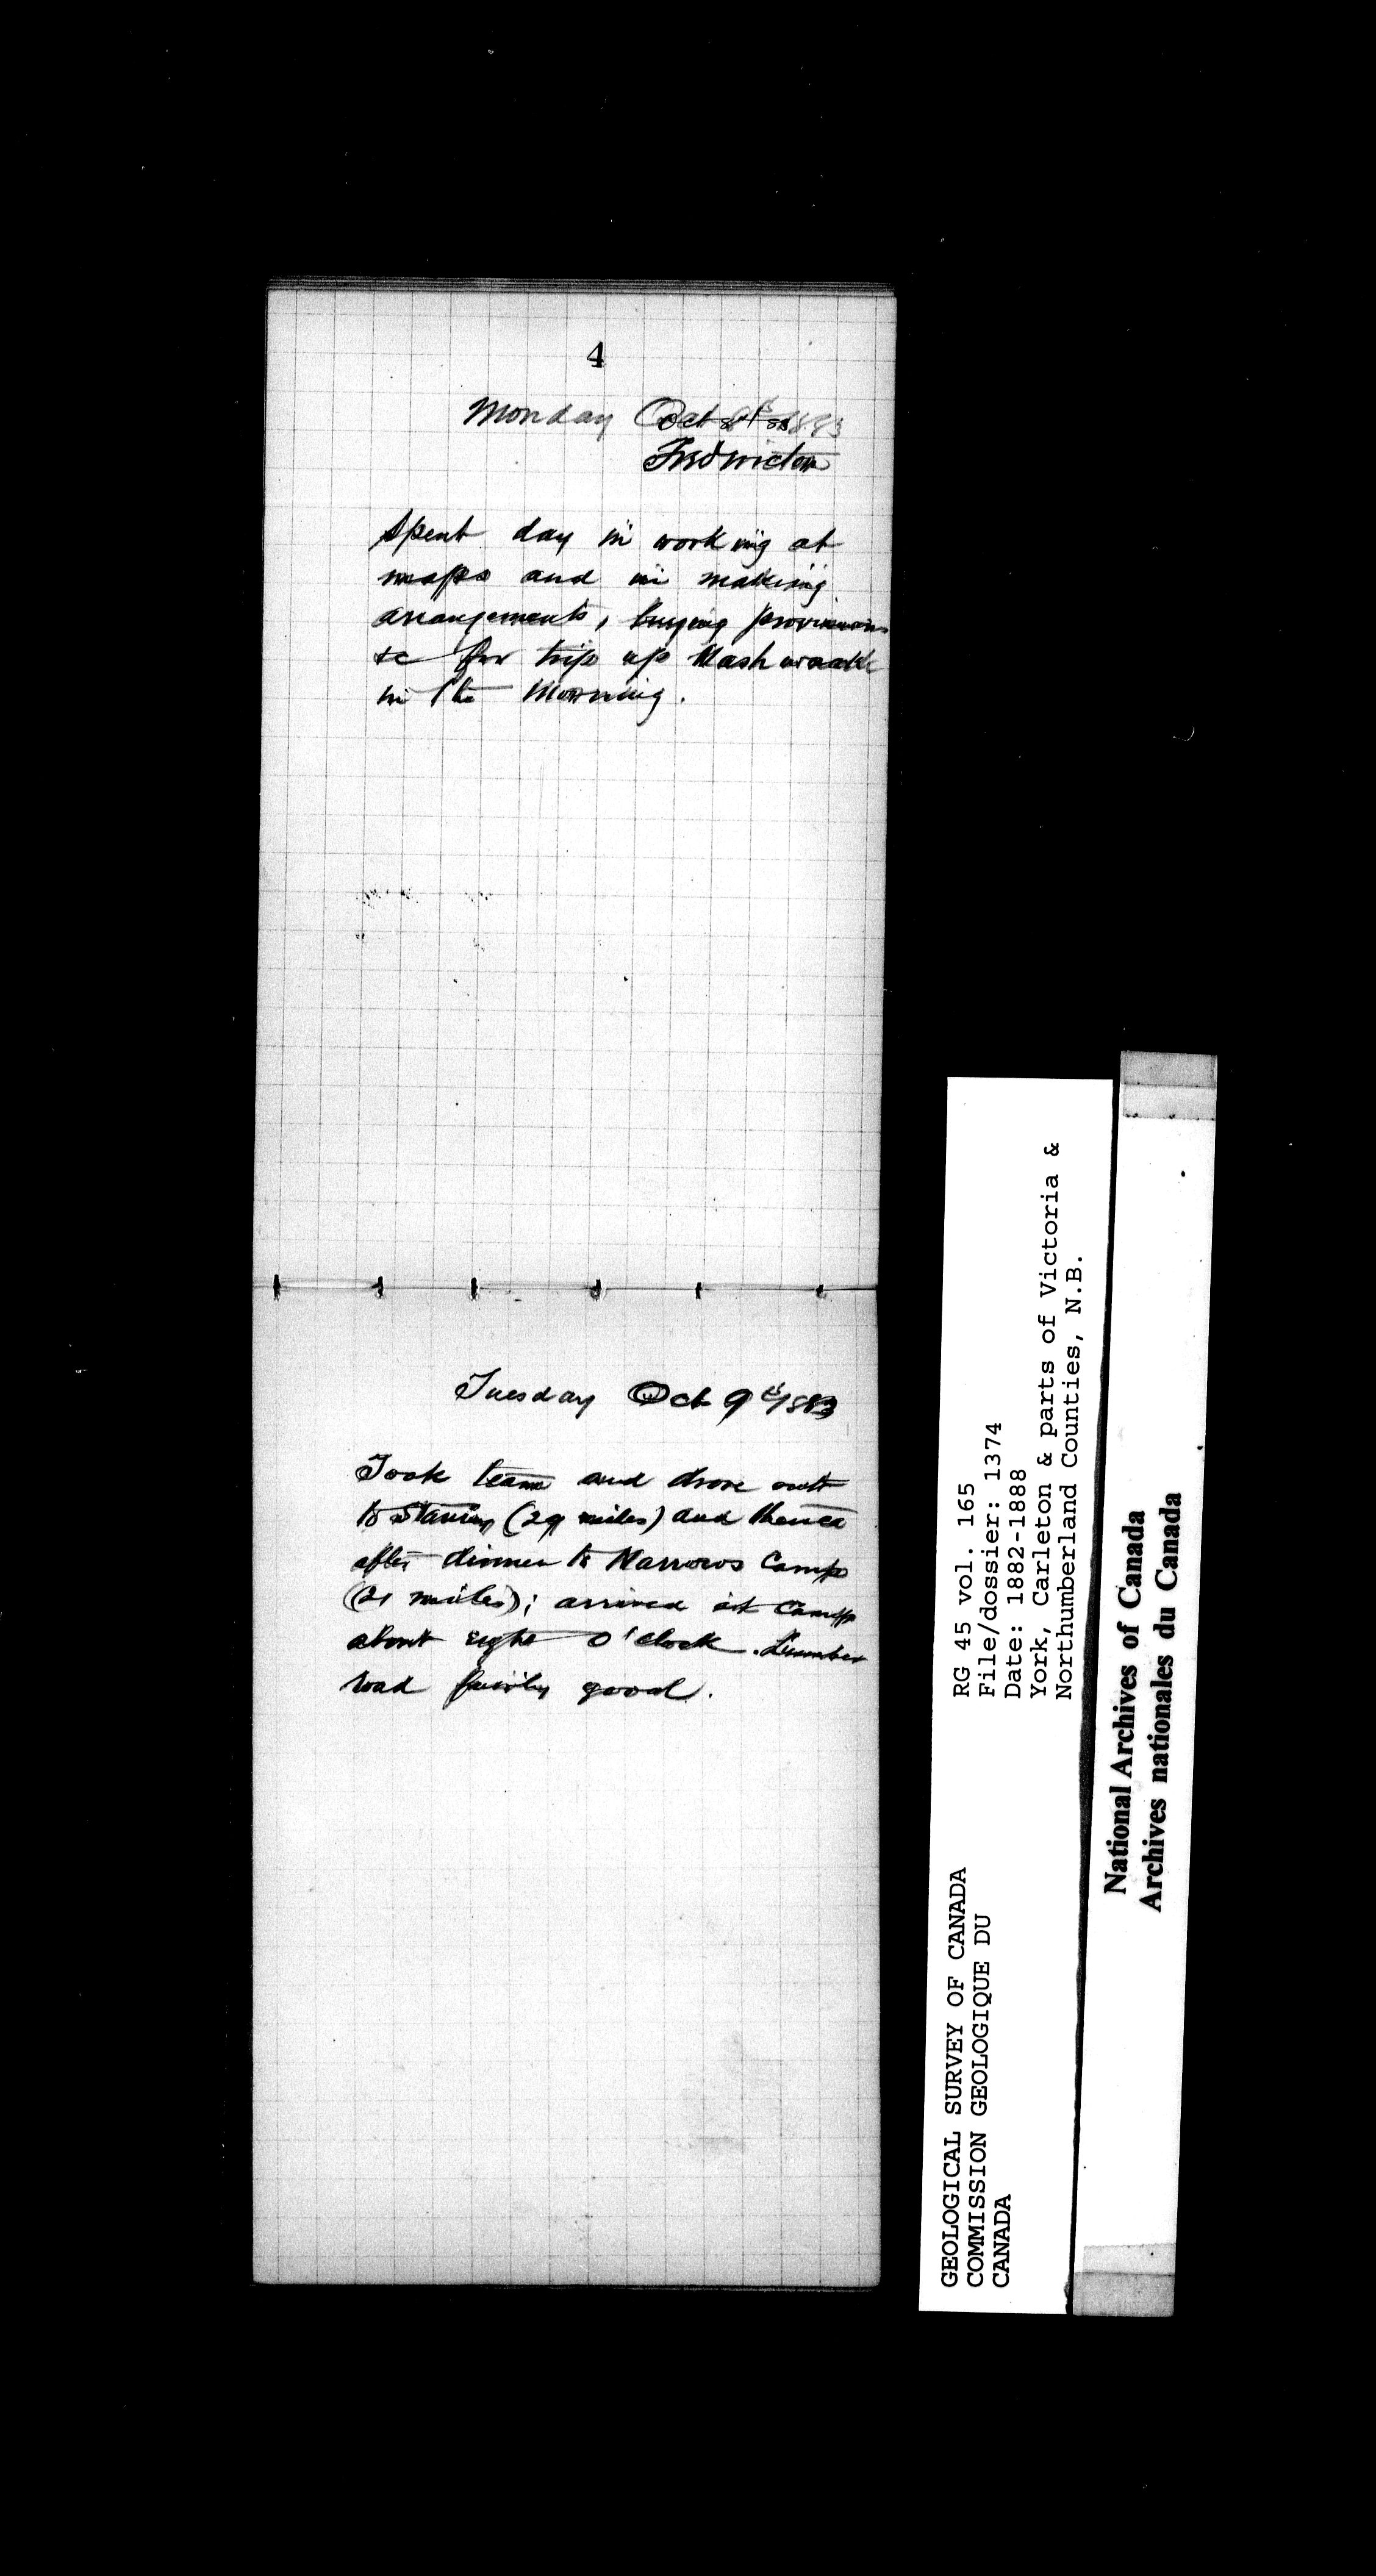 4
Monday Oct 8th 1883
Fredricton
Spent day in working at
maps and in making
arrangements, buying provisions
&c for trip up Nashwaak
in the Morning.
Tuesday Oct 9th 1883
Took team and drove out
to Stanley (29 miles) and thence
after dinner to Narrows Camp
(21 miles); arrived at Camp
about eight O'clock. Lumber
road fairly good.
GEOLOGICAL SURVEY OF CANADA
COMMISSION GEOLOGIQUE DU
CANADA
RG 45 vol. 165
File/dossier: 1374
Date: 1882-1888
York, Carleton & parts of Victoria &
Northumberland Counties, N.B.
National Archives of Canada
Archives nationales du Canada